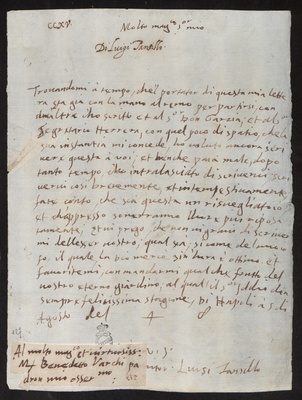 CCXV.
Molto mag.co s.or mio
Di Luigi Tansillo.
Trovandomi à tempo, che'l portator di questa mia lette
ra sta già con la mano al remo per partirsi, con
due altre, ch'ho scritto et al s.or Don Garzia, et al s.or
Segretario Herrera, con quel poco di spatio, che la
sua instantia mi concede, ho voluto ancora scri
vere questa à voi; et benche paia male, dopo
tanto tempo c'ho intralasciato di scrivervi, scri
vervi così brevemente, et intempestivamente,
fate conto, che sia questa un risvegliatoio
et ch'appresso verranno l'hore più riposa
tamente; et vi prego, de non mi gravi di scriver
mi dell'esser nostro, qual sia, si come del
so, il quale la più merce sin hora è ottimo, et
favoritemi, con mandarmi qualche frutto del
vostro eterno giardino, al qual il s.or Iddio dia
sempre felicissima stagione. Di Napoli à 5 di
Agosto del 4 8
Al molto mag.co et virtuosiss.
M. Benedetto Varchi pa
dron mio osser.mo
V. S.
Luigi Tansillo